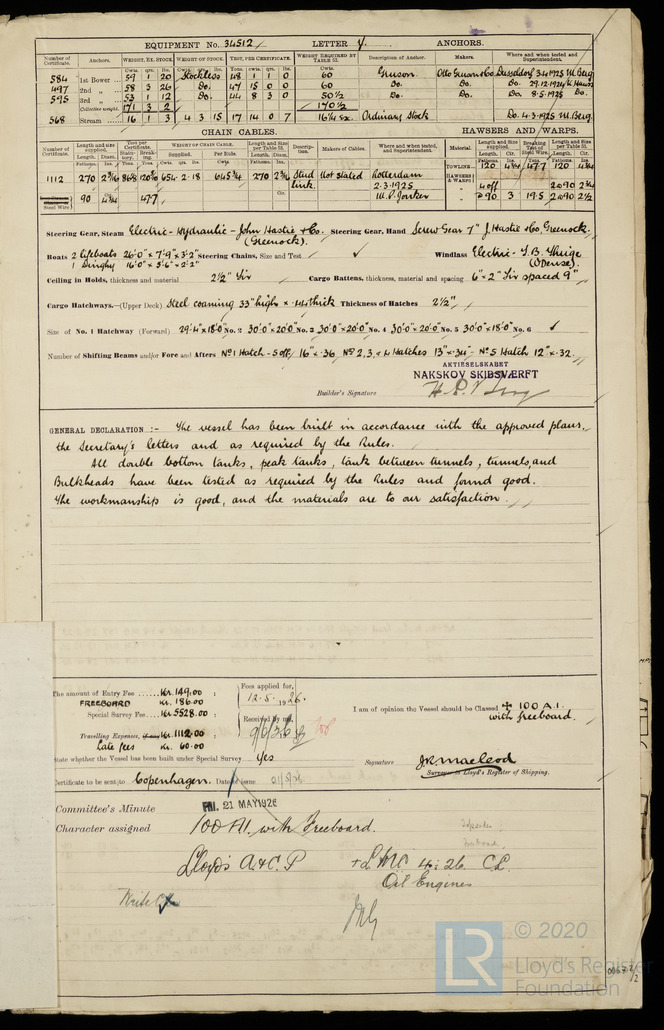 EQUIPMENT No. 34512 LETTER y. ANCHORS.
Number of Certificate. Anchors. WEIGHT, EX. STOCK. WEIGHT OF STOCK. TEST, PER CERTIFICATE. WEIGHT REQUIRED BY TABLE 53. Description of Anchor. Makers. Where and when tested and Superintendent.
Cwts. qrs. lbs. Cwts. qrs. lbs. Tons. cwts. qrs. lbs. Cwts.
584 1st Bower 59 1 20 Stockless 48 1 1 0 60 Gruson. Otto Gruson & Co. Dusseldorf 3.4.1925 M. Berg
497 2nd „ 58 3 26 Do. 47 15 0 0 60 Do. Do. Do. 29.12.1924
595 3rd „ 53 1 12 Do. 44 8 3 0 50½ Do. Do. Do. 8.5.1925 Do.
Collective weight. 171 3 2 170½
568 Stream 16 1 3 4 3 15 17 14 0 7 16¼ ex. Ordinary Stock Do. 4.3.1925 M. Berg.
CHAIN CABLES. HAWSERS AND WARPS.
Number of Certificate. Length and size supplied. Test per Certificate. WEIGHT OF CHAIN CABLE. Length and Size per Table 53. Description. Makers of Cables. Where and when tested, and Superintendent. Material. Length and size supplied. Breaking Test of Steel Wire. Length and Size per Table 53.
Length. Diam. Statutory. Breaking. Supplied. Per Rule. Length. Diam. Length. Cir. Length. Cir.
TOWLINE 120 4¾ 47.7 120 4¾
1112 270 2 3/16 86.8 120.8 654.2.18 645¾ 270 2 3/16 Stud Link. Not stated Rotterdam HAWSERS & WARPS
2.3.1925 4 off 2 @ 90 2¾
Steel Wire 90 4¾ 47.7 W. P. Jonker @ 90 3 19.5 2 @ 90 2½
Steering Gear, Steam Electric-Hydraulic - John Hastie & Co. Steering Gear, Hand Screw Gear 7" J. Hastie & Co, Greenock.
(Greenock).
Boats 2 lifeboats 26'0" x 7'9" x 3'2" Steering Chains, Size and Test ✓ Windlass Electric - T.B. Thrige
1 Dinghy 16'0" x 5'6" x 2'2" (Odense).
Ceiling in Holds, thickness and material 2½" Fir Cargo Battens, thickness, material and spacing 6" x 2" Fir spaced 9"
Cargo Hatchways.—(Upper Deck). Steel coaming 33" high x .44 thick Thickness of Hatches 2½"
Size of No. 1 Hatchway (Forward) 29'4" x 18'0" No. 2 30'0" x 20'0" No. 3 30'0" x 20'0" No. 4 30'0" x 20'0" No. 5 30'0" x 18'0" No. 6 ✓
Number of Shifting Beams and/or Fore and Afters No 1 Hatch - 5 off 16" x .36, No 2, 3, & 4 Hatches 13" x .34" - No 5 Hatch 12" x .32
AKTIESELSKABET
NAKSKOV SKIBSVÆRFT
Builder's Signature
GENERAL DECLARATION :- The vessel has been built in accordance with the approved plans,
the Secretary's letters and as required by the Rules.
All double bottom tanks, peak tanks, tank between tunnels, tunnels, and
Bulkheads have been tested as required by the Rules and found good.
The workmanship is good, and the materials are to our satisfaction.
The amount of Entry Fee ..... Kr. 149.00 : Fees applied for,
FREEBOARD Kr. 186.00 12.5.1926.
Special Survey Fee ... Kr. 5528.00 : Received by me,
I am of opinion the Vessel should be Classed ✠ 100 A.1.
with freeboard.
Travelling Expenses, Kr. 1112.00 : 9/6/26
Late fees Kr. 60.00
State whether the Vessel has been built under Special Survey Yes Signature J.R. Macleod
Surveyor to Lloyd's Register of Shipping.
Certificate to be sent to Copenhagen. Date of issue
Committee's Minute FRI. 21 MAY 1926
Character assigned 100 A1. with Freeboard.
Lloyd's A & C. P + LMC 4.26 C.L.
Oil Engines
Write
© 2020
LR
Lloyd's Register
Foundation